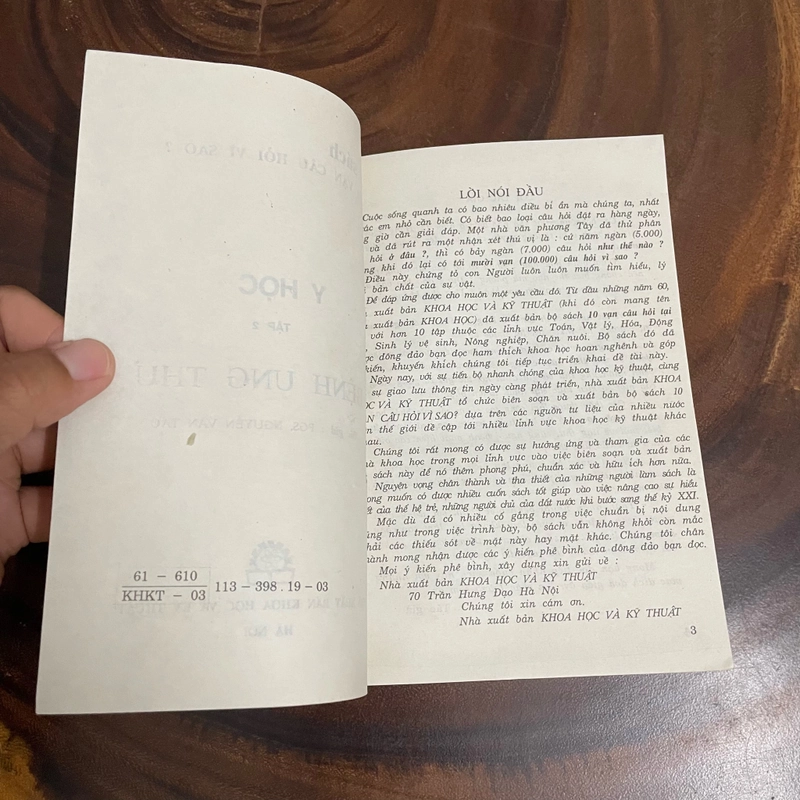 61 – 610
KHKT – 03
113 – 398 . 19 – 03
LỜI NÓI ĐẦU
Cuộc sống quanh ta có bao nhiêu điều bí ẩn mà chúng ta, nhất
em nhỏ cần biết. Có biết bao loại câu hỏi đặt ra hàng ngày,
giờ cần giải đáp. Một nhà văn phương Tây đã thử phân
và đã rút ra một nhận xét thú vị là : cứ năm ngàn (5.000)
hỏi ở đâu ?, thì có bảy ngàn (7.000) câu hỏi như thế nào ?
khi đó lại có tới mười vạn (100.000) câu hỏi vì sao ?
Điều này chứng tỏ con Người luôn luôn muốn tìm hiểu, lý
bản chất của sự vật.
Để đáp ứng được cho muôn một yêu cầu đó. Từ đầu những năm 60,
xuất bản KHOA HỌC VÀ KỸ THUẬT (khi đó còn mang tên
xuất bản KHOA HỌC) đã xuất bản bộ sách 10 vạn câu hỏi tại
với hơn 10 tập thuộc các lĩnh vực Toán, Vật lý, Hóa, Động
Sinh lý vệ sinh, Nông nghiệp, Chăn nuôi. Bộ sách đó đã
đông đảo bạn đọc ham thích khoa học hoan nghênh và góp
kiến, khuyến khích chúng tôi tiếp tục triển khai đề tài này.
Ngày nay, với sự tiến bộ nhanh chóng của khoa học kỹ thuật, cùng
sự giao lưu thông tin ngày càng phát triển, nhà xuất bản KHOA
HỌC VÀ KỸ THUẬT tổ chức biên soạn và xuất bản bộ sách 10
CÂU HỎI VÌ SAO? dựa trên các nguồn tư liệu của nhiều nước
thế giới đề cập tới nhiều lĩnh vực khoa học kỹ thuật khác
nhau.
Chúng tôi rất mong có được sự hưởng ứng và tham gia của các
nhà khoa học trong mọi lĩnh vực vào việc biên soạn và xuất bản
sách này để nó thêm phong phú, chuẩn xác và hữu ích hơn nữa.
Nguyện vọng chân thành và tha thiết của những người làm sách là
mong muốn có được nhiều cuốn sách tốt giúp vào việc nâng cao sự hiểu
biết của thế hệ trẻ, những người chủ của đất nước khi bước sang thế kỷ XXI.
Mặc dù đã có nhiều cố gắng trong việc chuẩn bị nội dung
cũng như trong việc trình bày, bộ sách vẫn không khỏi còn mắc
phải các thiếu sót về mặt này hay mặt khác. Chúng tôi chân
thành mong nhận được các ý kiến phê bình của đông đảo bạn đọc.
Mọi ý kiến phê bình, xây dựng xin gửi về :
Nhà xuất bản KHOA HỌC VÀ KỸ THUẬT
70 Trần Hưng Đạo Hà Nội
Chúng tôi xin cám ơn.
Nhà xuất bản KHOA HỌC VÀ KỸ THUẬT
3